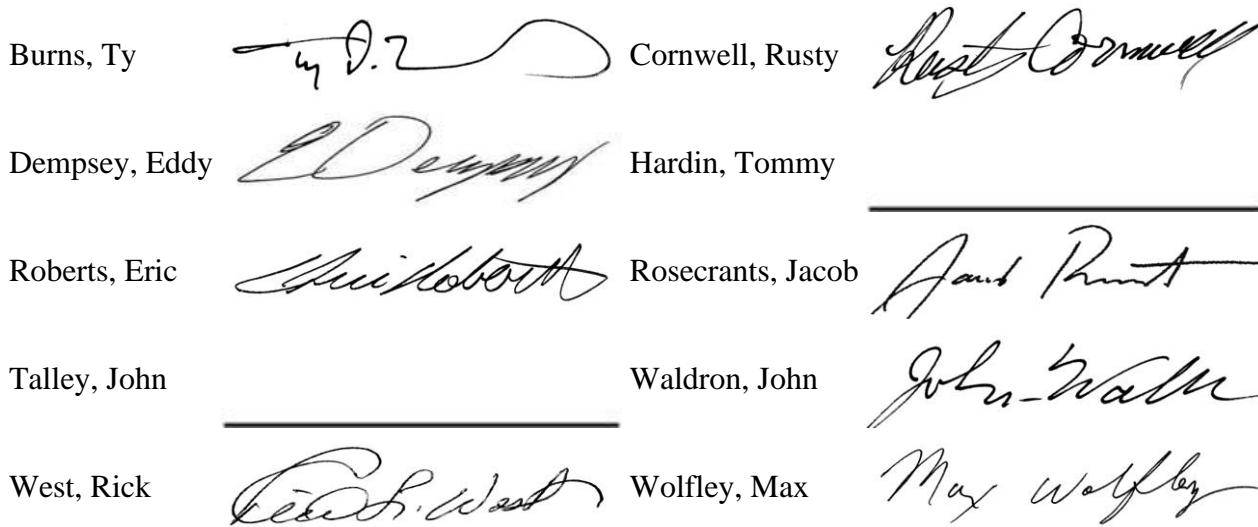 Burns, Ty Ty D. Cornwell, Rusty Rusty Cornwell
Dempsey, Eddy E Dempsey Hardin, Tommy
Roberts, Eric Eric Roberts Rosecrants, Jacob
Talley, John Waldron, John John Wald
West, Rick Rick L. West Wolfley, Max Max Wolfley